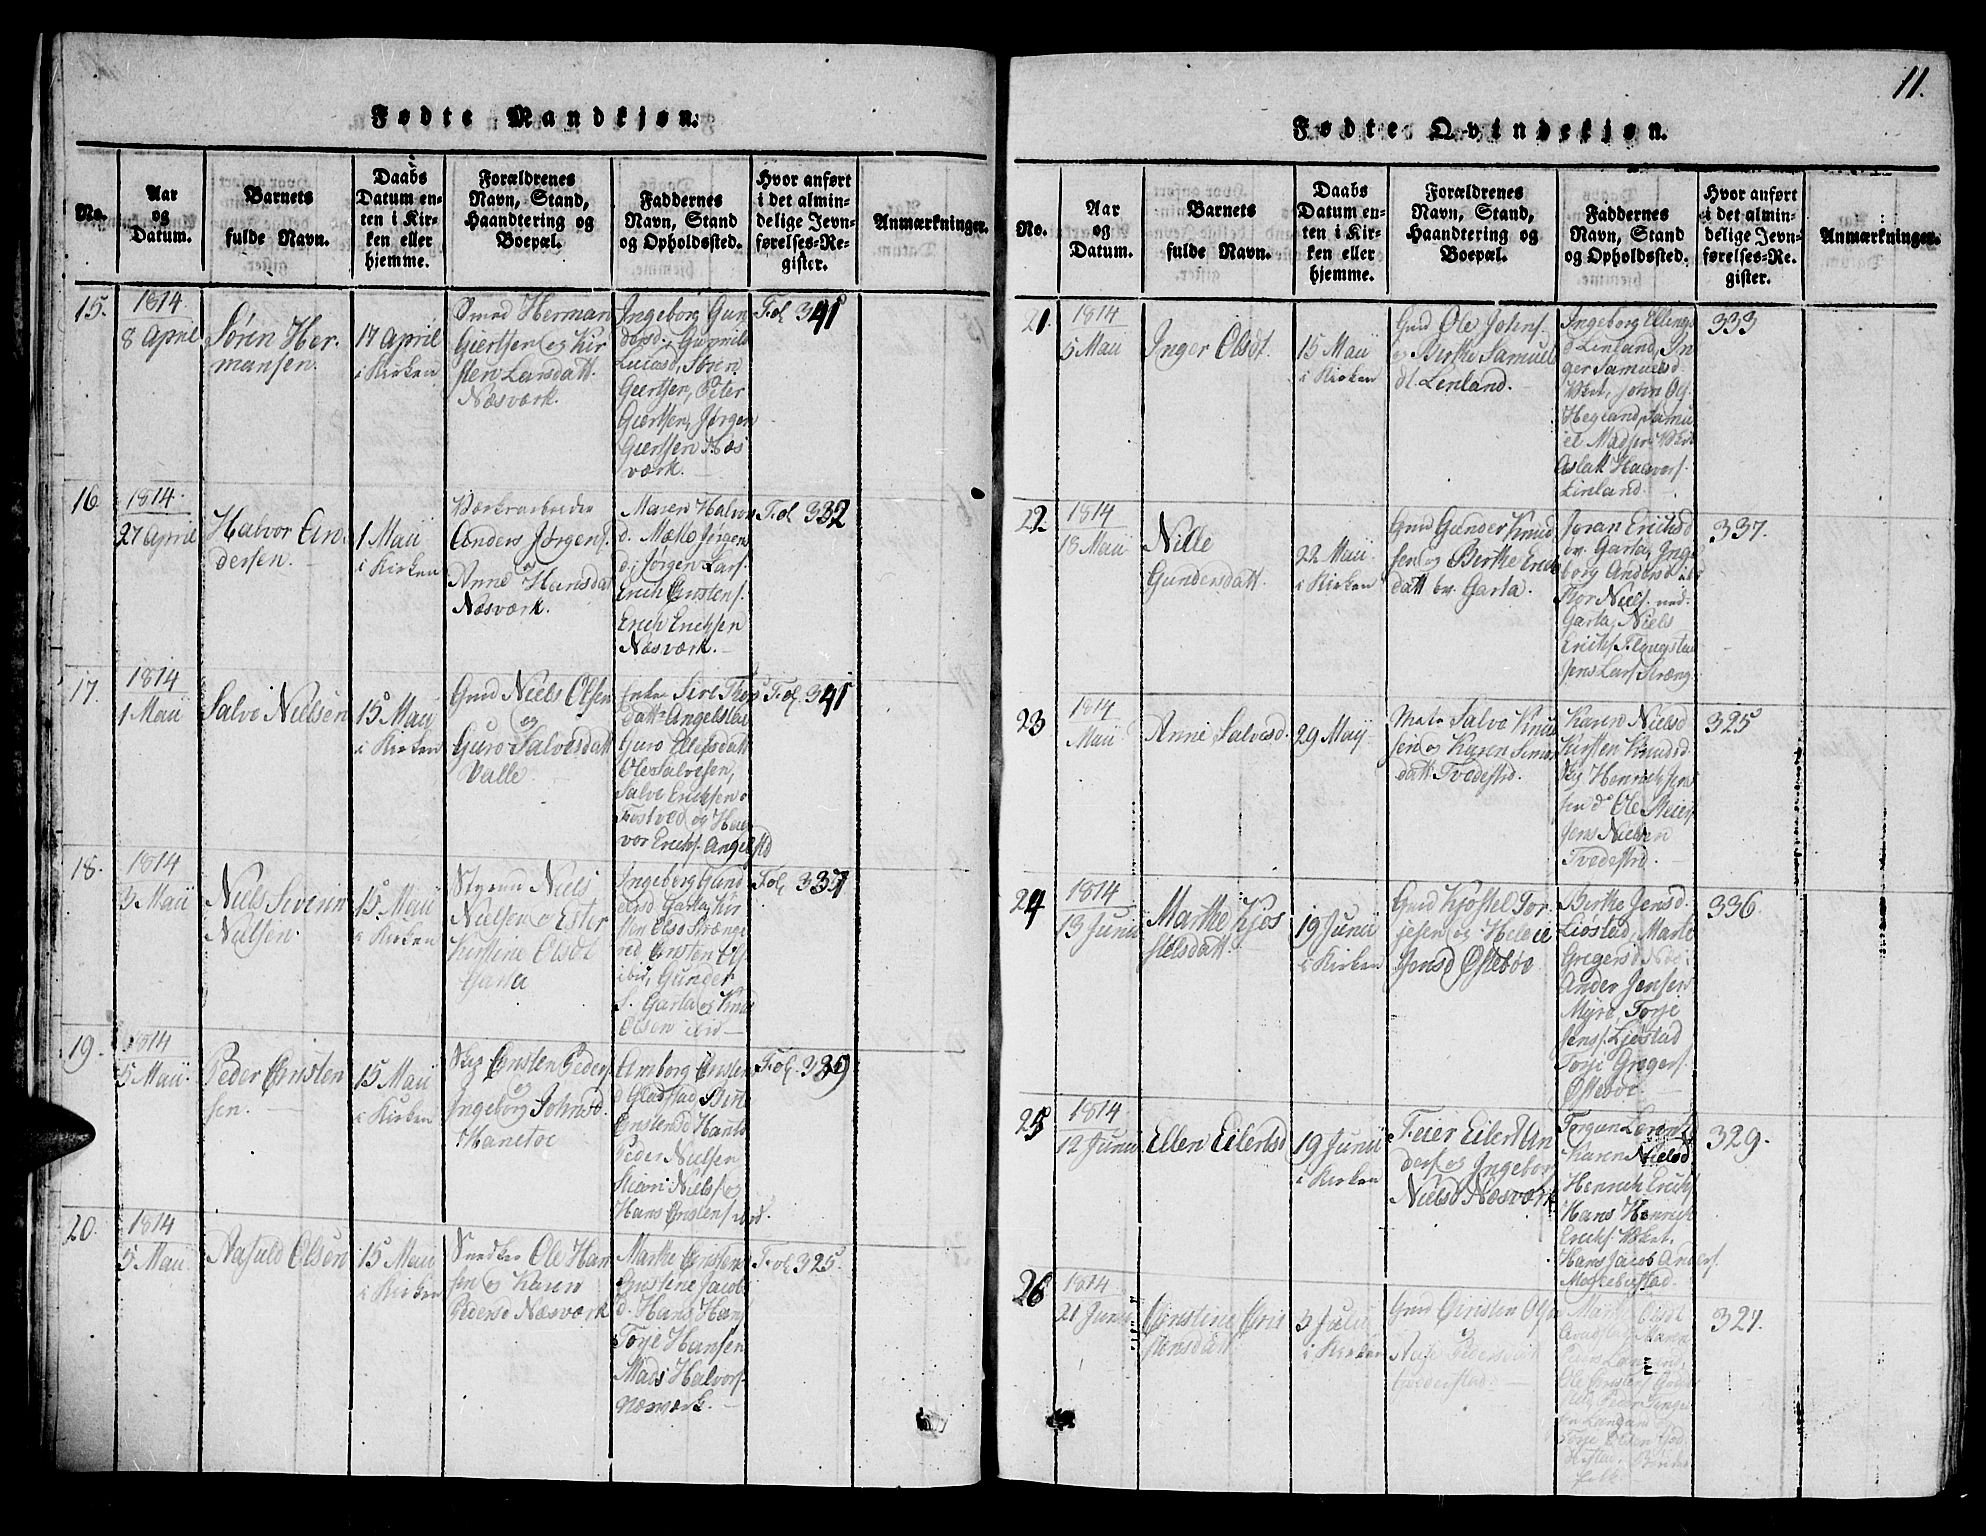 Fødte Mandkjøn.
No.
Aar
og
Datum.
Barnets
fulde Navn.
Daabs
Datum en-
ten i Kir-
ken eller
hjemme.
Forældrenes
Navn, Stand,
Haandtering og
Boepæl.
Faddernes
Navn, Stand
og Opholdssted.
Hvor anført
i det almin-
delige Jevn-
førelses-Re-
gister.
Anmærkninger.
15.
1814
8 April
Søren Her-
mansen.
17 April
i Kirken
Smed Herman
Giertsen og Kir
sten Larsdatt.
Næsværk.
Ingeborg Gun
Lucasd, Søren
Giertsen, Peter
Giertsen, Jørgen
Giertsen Næs
værk.
Fol 341
16.
1814.
27 April
Halvor An
dersen.
1 Maii
i Kirken
Værksarbeider
Anders Jørgens.
og
Anne Hansda
Næsværk.
Maren Halvor
d. Mætte Jørgen
d, Jørgen Lars.
Erich Cristens.
Erich Erichsen
Næsværk.
Fol 332
17.
1814
1 Maii
Salve Nielsen
15 Maij
i Kirken
Gmd Niels Olsen
og
Guro Salvesdatt
Valle
Enke Siri
datt Angelstad
Guro Ellefsdatt
Ole Salvesen,
Salve Erichsen
Fostved og Hal
vor Erichs. Angelstd
Fol. 341
18.
1814
3 Maii
Niels Severin
Nielsen.
15 Maii
i Kirken
Styrmd Niels
Nielsen og Ester
Kirstine Olsdt
Garta
Ingeborg Gund
dersd Garta, Kir
sten Olsd Stræng
Cristen Ols
ibid, Gunder
Garta og Knud
Olsen ibid
Fol 337
19.
1814
5 Maii
Peder Cristen
sen.
15 Maii
i Kirken
Cristen Peders
og
Ingeborg Johnsd.
Hanetoe
Amborg Cristens
d Gladstad
Cristensd Hant
Peder Nielsen
Niels. og
Hans Cristens ibid.
Fol. 339
20.
1814
5 Maii
Aasuld Olsen
15 Maii
i Kirken
Snedker Ole Han
sen og Karen
Pedersd Næsværk
Marthe Cristens
Cristine Jacob
d. Hans Hans
Torje Hansen
Mads Halvors.
Næsværk.
Fol 325.
11.
Fødte Qvindekjøn.
No.
Aar
og
Datum.
Barnets
fulde Navn.
Daabs
Datum en-
ten i Kir-
ken eller
hjemme.
Forældrenes
Navn, Stand,
Haandtering og
Boepæl.
Faddernes
Navn, Stand
og Opholdssted.
Hvor anført
i det almin-
delige Jevn-
førelses-Re-
gister.
Anmærkninger.
21.
1814
5 Maii
Inger Olsdt.
15 Maii
i Kirken
Gmd Ole Johns.
og Birthe Samuels
dt. Lenland.
Ingeborg Ellings
d Lenland, In
ger Samuelsd
John Ols
Hegland, Samu
el Madsen
Aslak Halvors.
Linland.
333
22.
1814
18 Maii
Nille
Gundersdatt.
22 Maii.
i Kirken
Gmd Gunder Knud
sen og Birthe Erich
datt Garta.
Joran Erichsd
Garta, Inge
borg Andersd ib.
Thor Niels. ned.
Garta, Niels
Erichs
Jens Lars Stræng
337.
23
1814
Maii
Anne Salvesd.
29 Maij
Matr Salve Knud
sen og Karen Simon
datt Tvedestrd.
Karen Nielsd
Kirsten Knudsd
Henrich Jens
sen d° Ole Meier
Jens Nielsen
Tvedestrd.
325
24
1814
13 Junii
Marthe Kjøs
telsdatt
19 Junii
i Kirken
Gmd Kjøstel Tor
jesen og Helvie
Jensd Østebøe
Birthe Jensd.
Liøstad, Marte
Gregersd
Ander Jensen
Myre, Torje
Jens. Liøstad
Torje Gregers.
Østebøe
336
25
1814
12 Junii
Ellen Eilertsd
19 Junii
i Kirken
Feier Eilert An
ders. og Ingebor
Nielsd Næsværk
Torgun Lorent
Karen Nielsd
Henrich Erichs
Hans Henrich
Erichs.
Hans Jacob Anders.
329.
26
1814
21 Junii
Cirstine Cris
tensdatt
3 Julii
i Kirken
Gmd Cirsten Olsen
og
Pedersdatt
Marthe Olsdt
Maren
Peder
Torje Olsen
327.